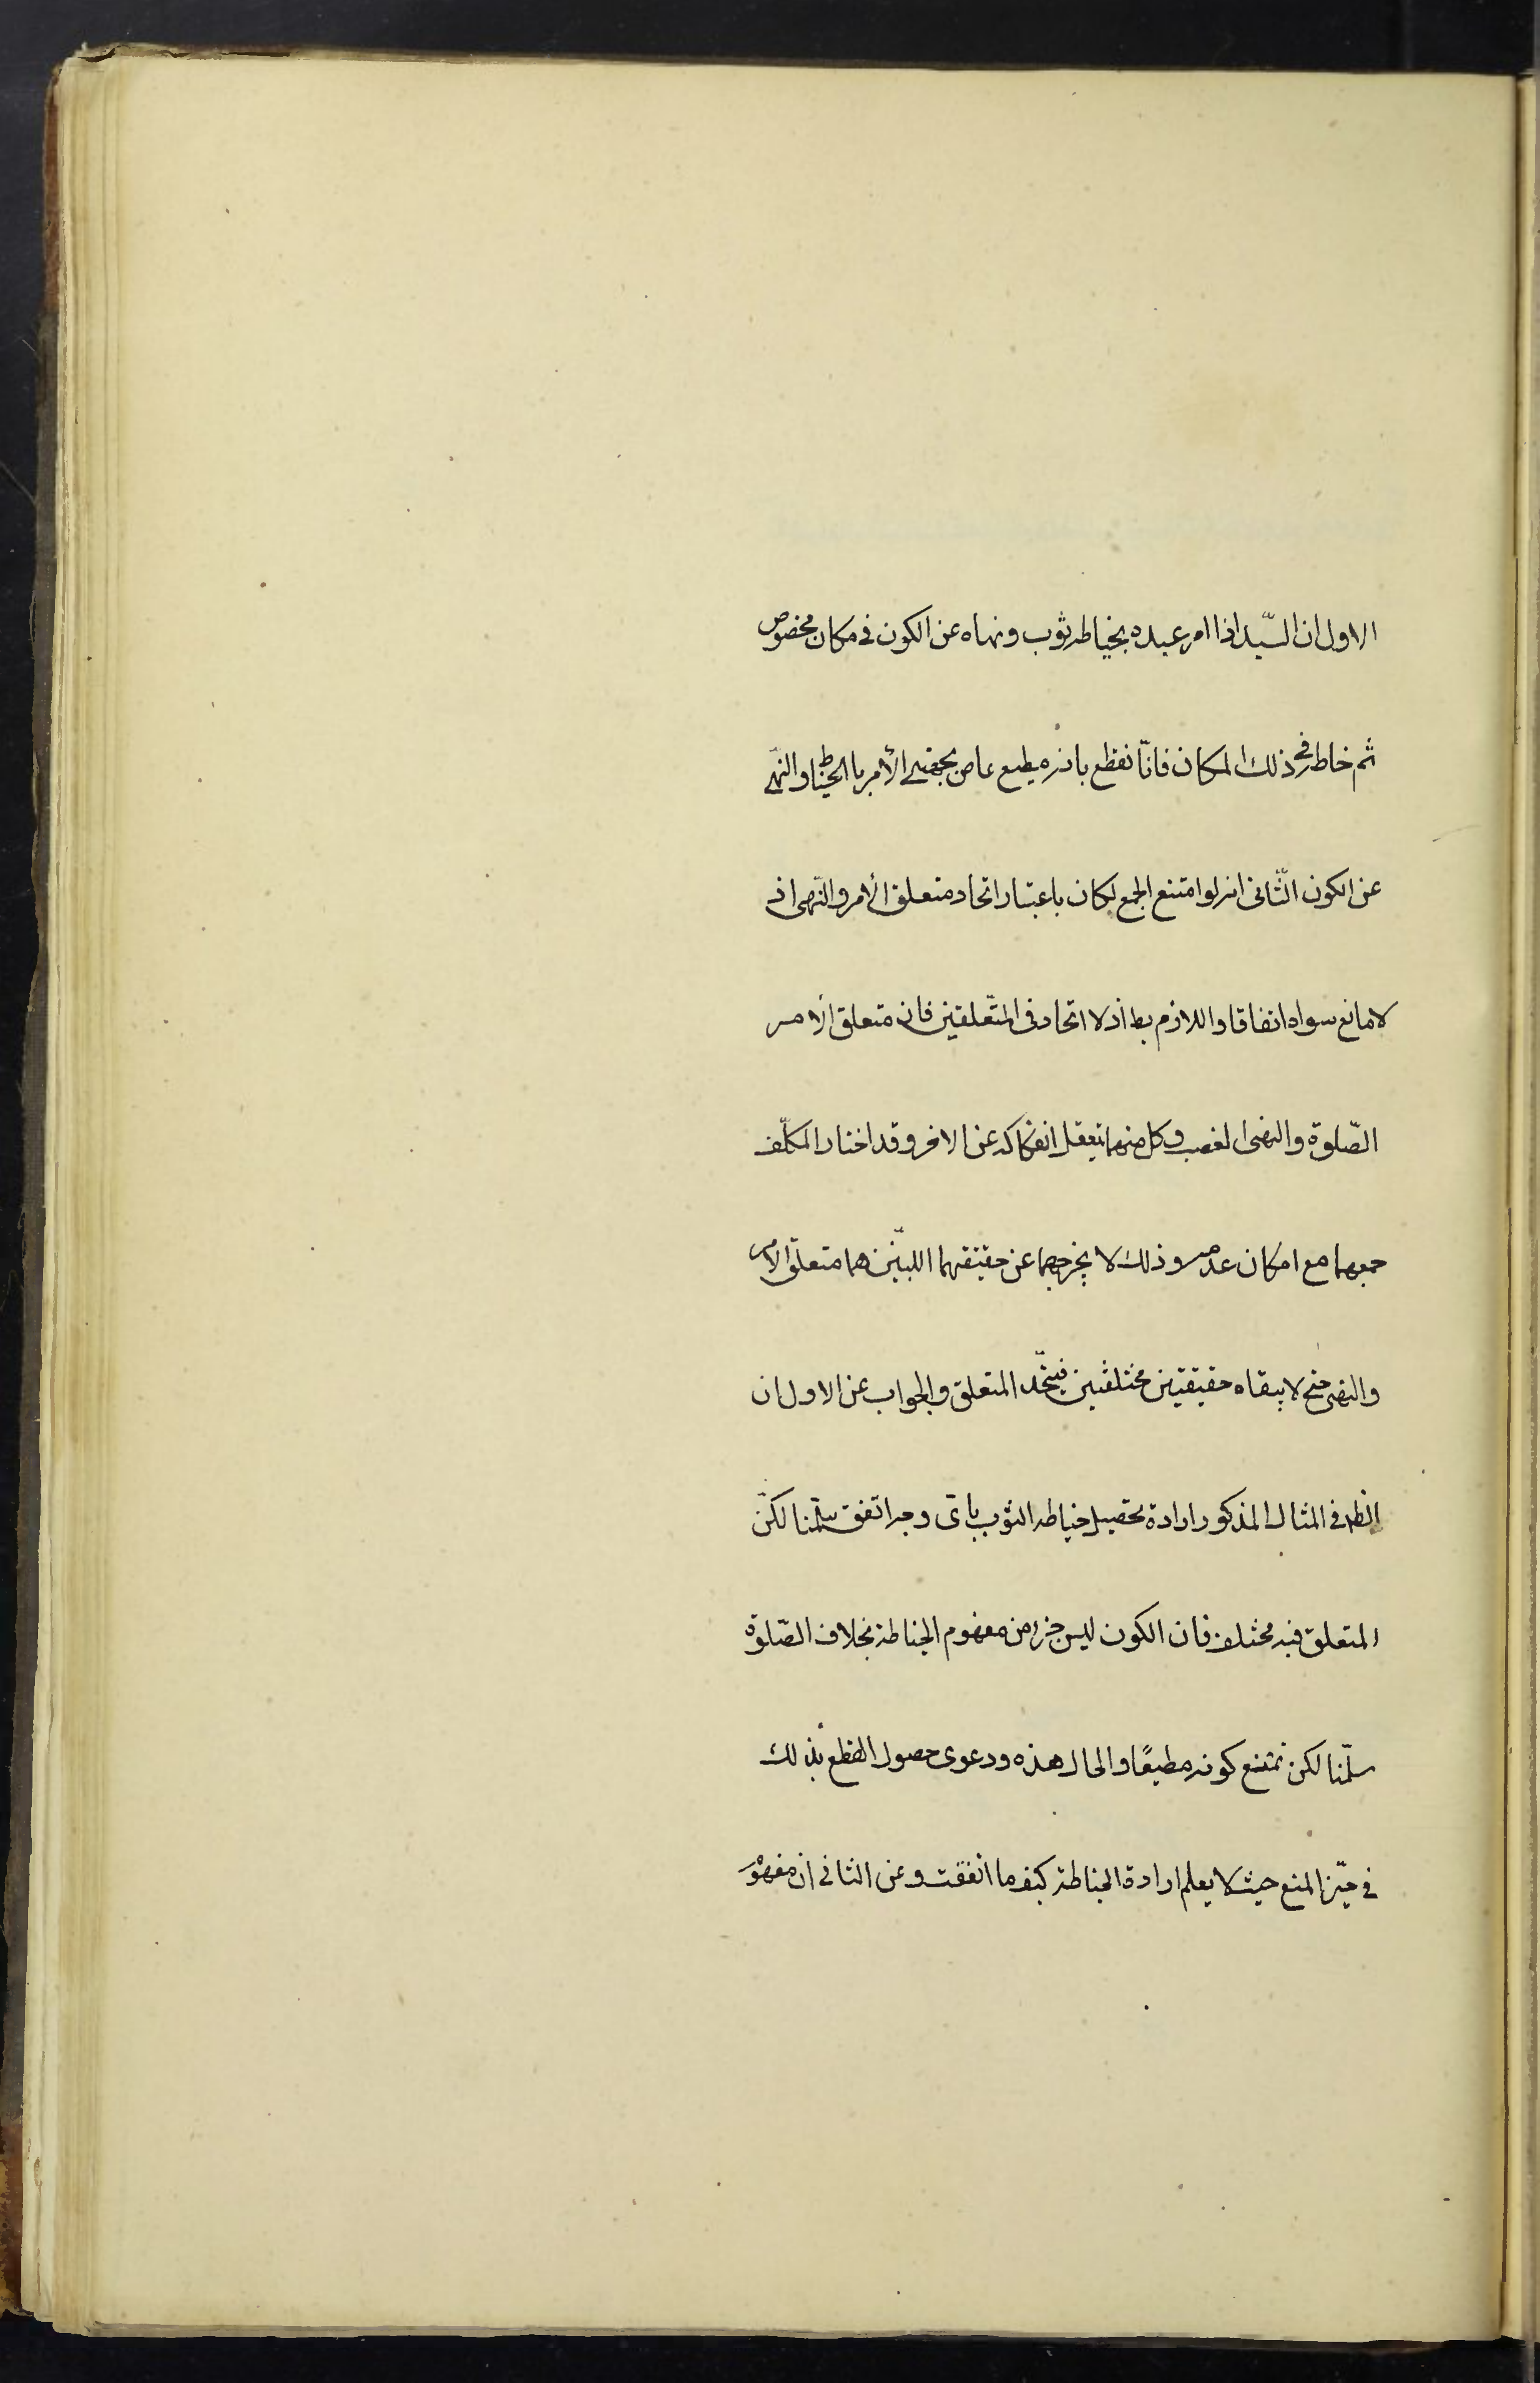 الاول ان السّيد اذا امر عبده بخياطه ثوب ونهاه عن الكون فى مكان مخصوص
ثم خاطه فى ذلك المكان فانّا نقطع بانه مطيع عاص بجهتى الأمر بالخيطا والنّهى
عن الكون الثّانى انه لو امتنع الجمع لكان باعتبار اتحاد متعلق الأمر والنّهى اذ
لا مانع سواه اتفاقا واللازم بط اذ لا اتحاد فى المتّعلقين فان متعلق الأمر
الصّلوة والنهى الغصب وكل منهما يتعقل انفكاكه عن الاخر وقد اختار المكلّف
جمعهما مع امكان عدمه وذلك لا يخرجهما عن حقيقتهما اللتّين هما متعلّق الامر
والنهى حتى لا يبقاه حقيقيتين مختلفين فيتّحد المتعلق والجواب عن الاول ان
الظاهر فى المثال المذكور ارادة تحصيل خياطه الثوب باىّ وجه اتّفق سلّمنا لكنّ
المتعلق فيه مختلف فان الكون ليس جزء من مفهوم الخياطة بخلاف الصّلوة
سلّمنا لكن نمنع كونه مطيعًا والحال هذه ودعوى حصول القطع بذلك
فى حيّز المنع حيث لا يعلم ارادة الخياطة كيف ما اتفقت وعن الثانى ان مفهوم